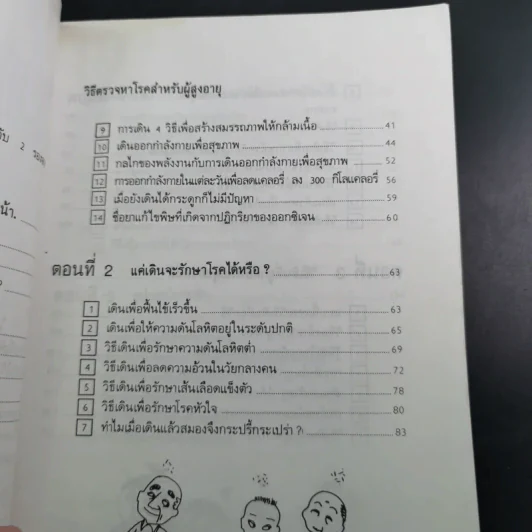 วิธีตรวจหาโรคสำหรับผู้สูงอายุ
9 การเดิน 4 วิธีเพื่อสร้างสมรรถภาพให้กล้ามเนื้อ 41
10 เดินออกกำลังกายเพื่อสุขภาพ 44
11 กลไกของพลังงานกับการเดินออกกำลังกายเพื่อสุขภาพ 52
12 การออกกำลังกายในแต่ละวันเพื่อลดแคลอรี่ ลง 300 กิโลแคลอรี่ 56
13 เมื่อยังเดินได้กระดูกก็ไม่มีปัญหา 59
14 ชื่อยาแก้ไขพิษที่เกิดจากปฏิกริยาของออกซิเจน 60
ตอนที่ 2 แค่เดินจะรักษาโรคได้หรือ ? 63
1 เดินเพื่อฟื้นไข้เร็วขึ้น 63
2 เดินเพื่อให้ความดันโลหิตอยู่ในระดับปกติ 65
3 วิธีเดินเพื่อรักษาความดันโลหิตต่ำ 69
4 วิธีเดินเพื่อลดความอ้วนในวัยกลางคน 72
5 วิธีเดินเพื่อรักษาเส้นเลือดแข็งตัว 78
6 วิธีเดินเพื่อรักษาโรคหัวใจ 80
7 ทำไมเมื่อเดินแล้วสมองจึงกระปรี้กระเปร่า ? 83